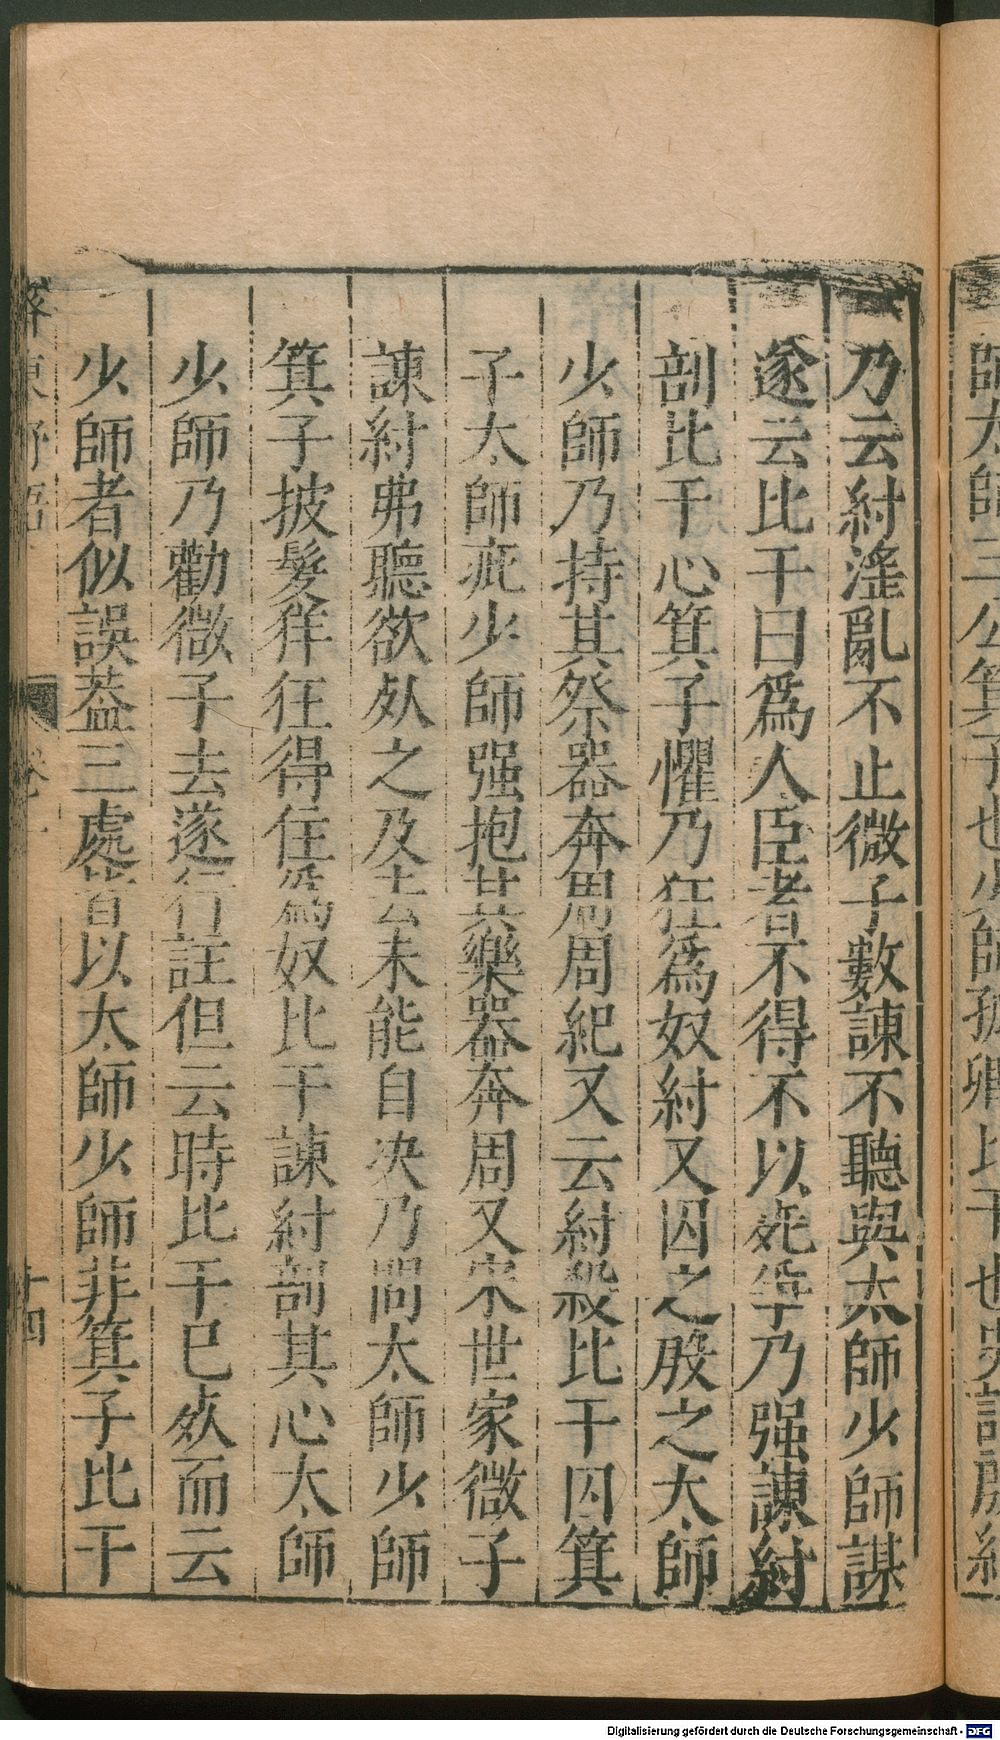 師太師三公箕子也少師孤卿比干也史記殷紀
乃云紂滛亂不止微子數諌不聽與太師少師謀
遂云比干曰爲人臣者不得不以死爭乃强諌紂
剖比干心箕子懼乃狂爲奴紂又囚之殷之太師
少師乃持其祭器奔周周紀又云紂殺比干囚箕
子太師疵少師强抱其樂器奔周又宋世家微子
諌紂弗聽欲死之及去未能自决乃問太師少師
箕子披髮佯狂得住爲奴比干諌紂剖其心太師
少師乃勸微子去遂行註但云時比干已死而云
少師者似誤葢三處皆以太師少師非箕子比干
齊東野語
卷十
十四
Digitalisierung gefördert durch die Deutsche Forschungsgemeinschaft - DFG